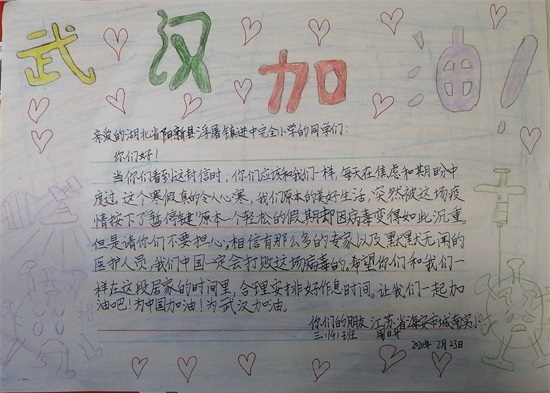 武汉加油!
亲爱的湖北省阳新县浮屠镇进中完全小学的同学们:
你们好!
当你们看到这封信时,你们应该和我们一样,每天在焦虑和期盼中
度过,这个寒假真的令人心寒,我们原本的美好生活,突然被这场疫
情按下了“暂停键”原本一个轻松的假期却因病毒变得如此沉重。
但是请你们不要担心,相信有那么多的专家以及默默无闻的
医护人员,我们中国一定会打败这场病毒的。希望你们和我们一
样在这段居家的时间里,合理安排好作息时间。让我们一起加
油吧!为中国加油!为武汉加油。
你们的朋友 江苏省海安市城南实小
三(4)班
2020年 2月23日